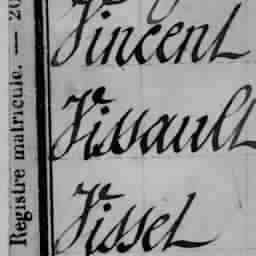 Registre matricule. — 20
Vincent
Vissault
Vissel